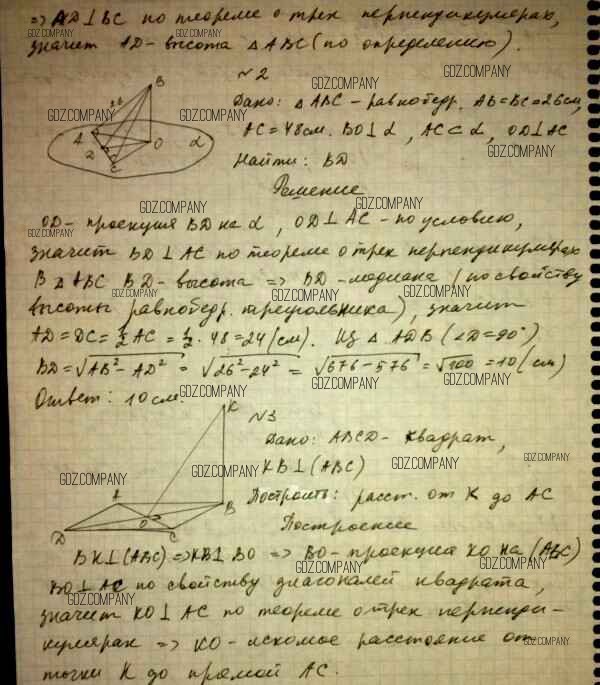 ⇒ AD⊥BC по теореме о трех перпендикулярах,
значит AD- высота △ABC (по определению).
№2
Дано: △ABC - равнобедр. AB=BC=26см,
AC=48см. BO⊥α, AC⊂α, OD⊥AC
Найти: BD
Решение
OD- проекция BD на α, OD⊥AC - по условию,
значит BD⊥AC по теореме о трех перпендикулярах
В △ABC BD- высота ⇒ BD- медиана (по свойству
высоты равнобедр. треугольника), значит
AD=DC=½AC=½·48=24(см). Из △ADB (∠D=90°)
BD=√AB²-AD² = √26²-24² = √676-576 = √100 =10(см)
Ответ: 10см.
№3
Дано: ABCD- квадрат,
KB⊥(ABC)
Построить: расст. от K до AC
Построение
BK⊥(ABC)⇒KB⊥BO ⇒ BO- проекция KO на (ABC)
BO⊥AC по свойству диагоналей квадрата,
значит KO⊥AC по теореме о трех перпенди-
кулярах ⇒ KO- искомое расстояние от
точки K до прямой AC.
B
26
A
O
α
2
C
K
A
B
O
D
C
GDZ.COMPANY